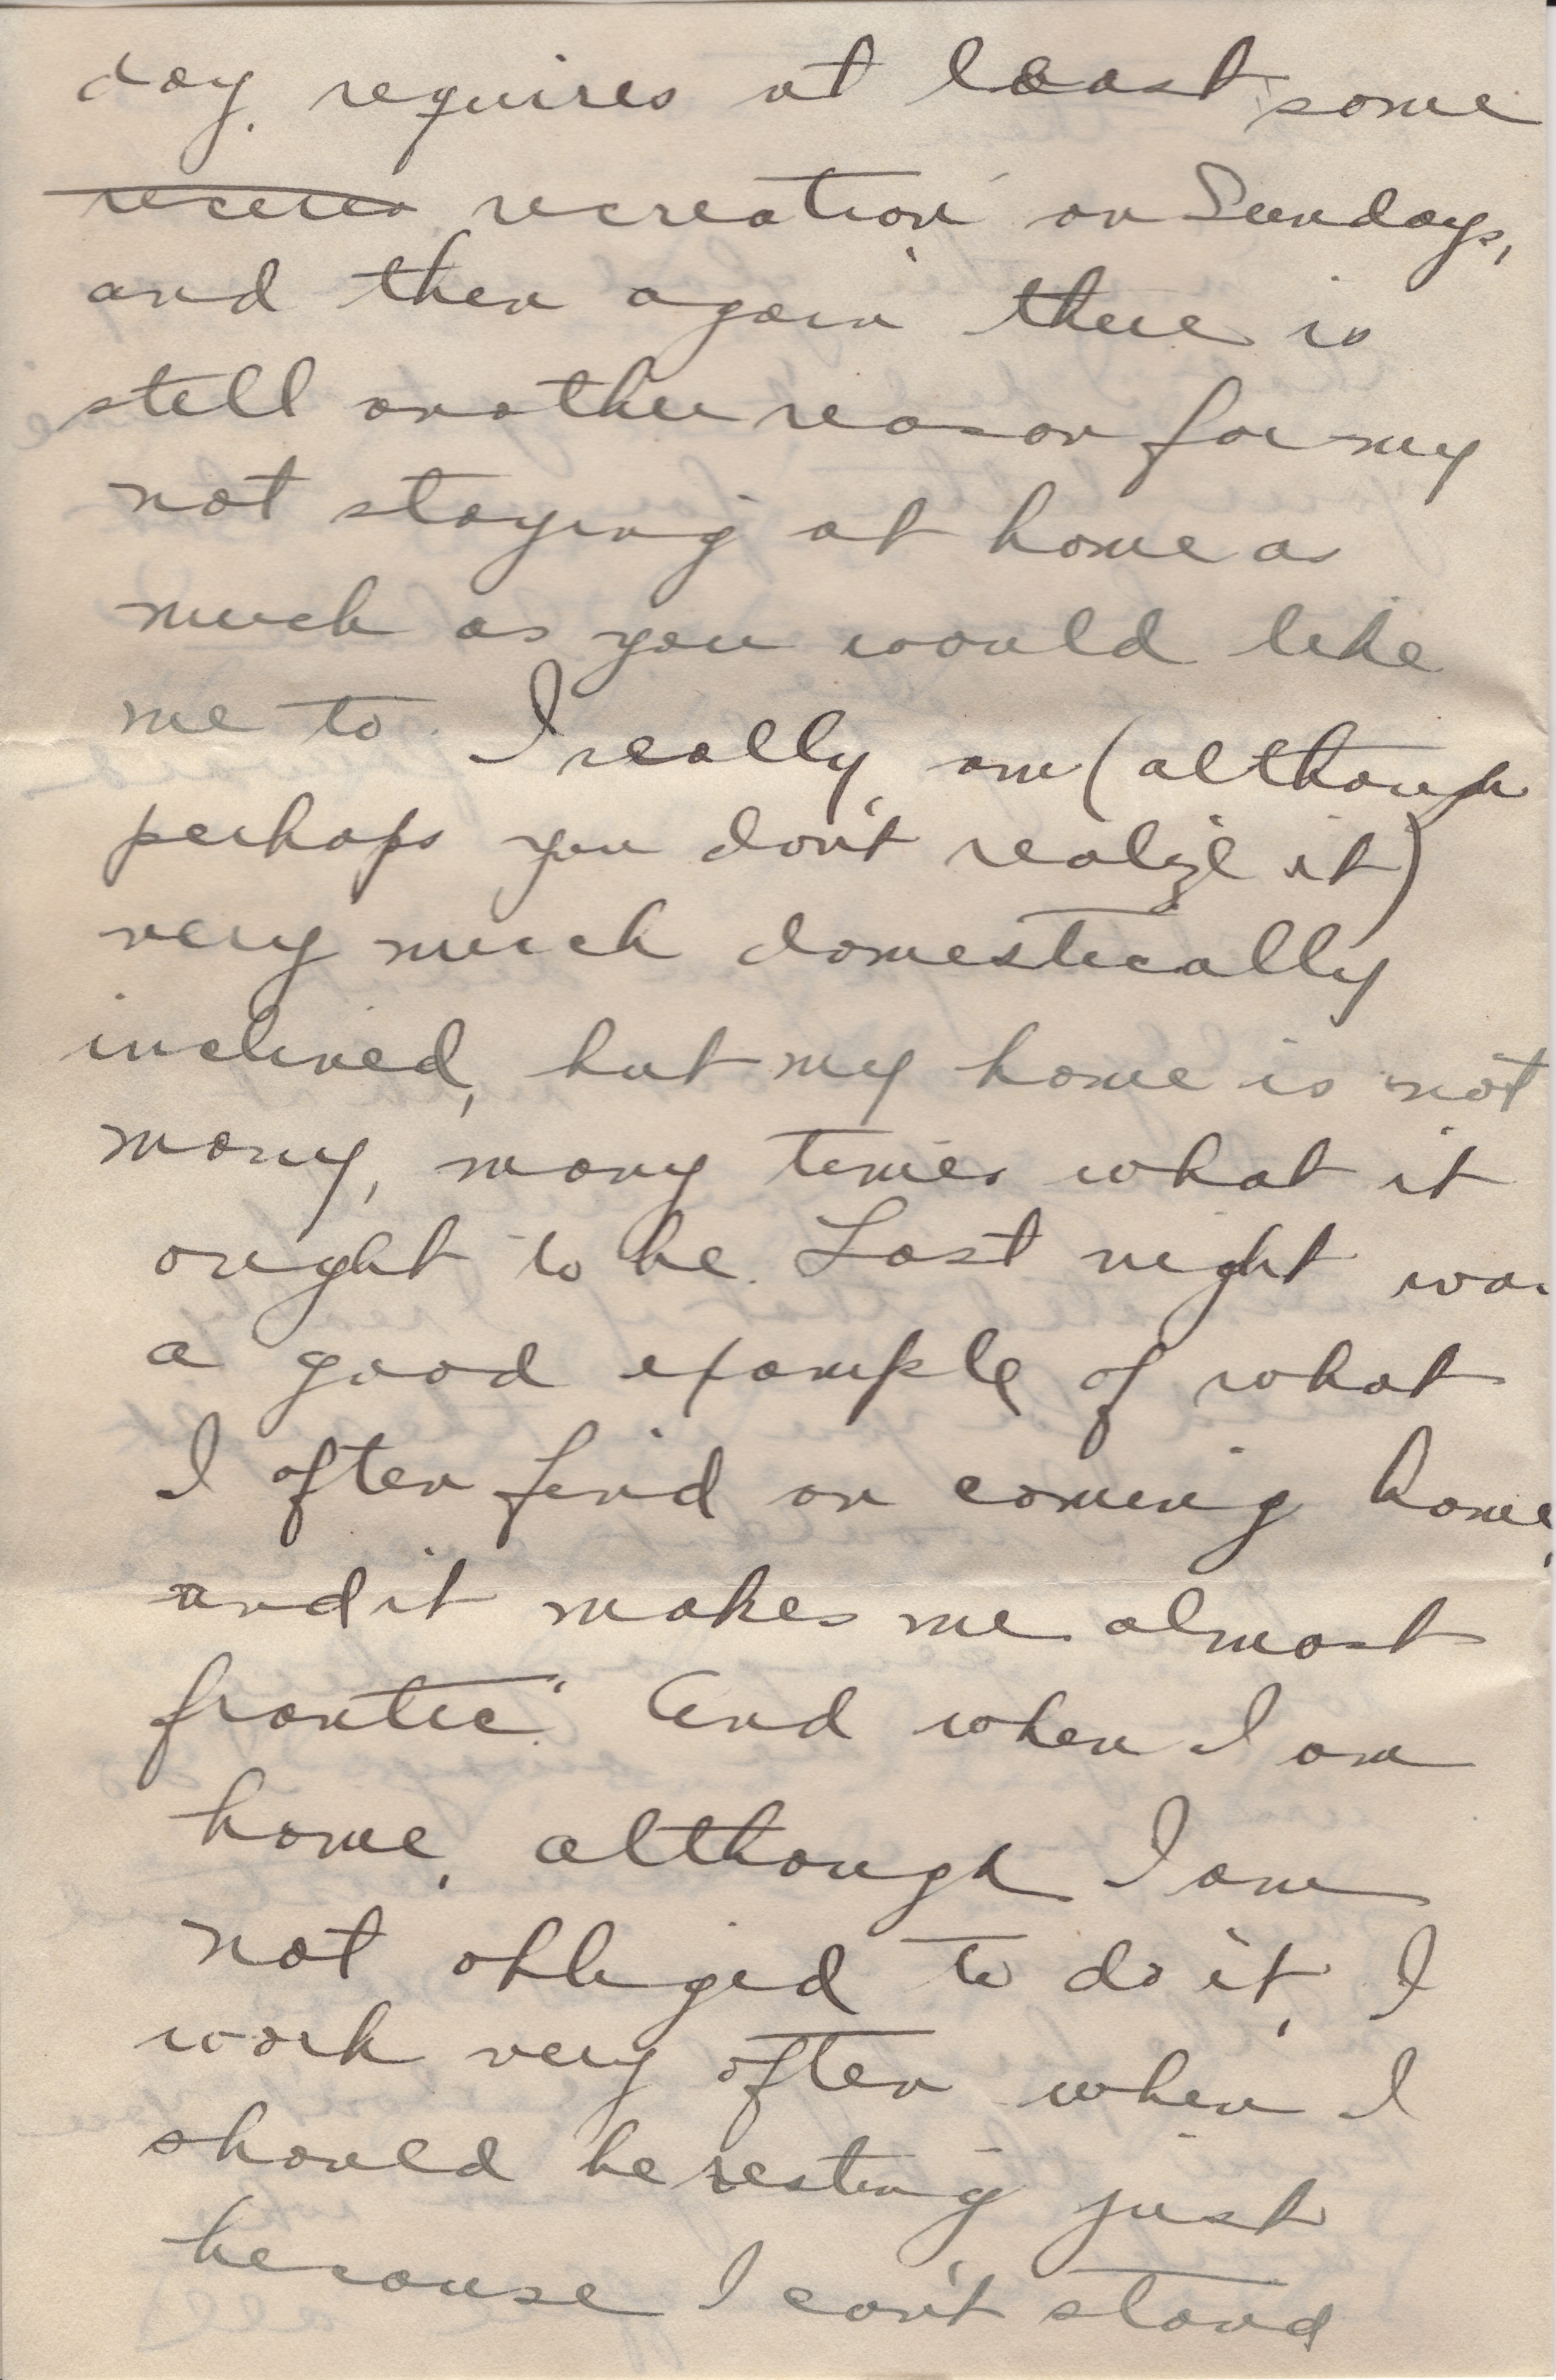 day, requires at least some
recrea recreation on Sundays,
and then again there is
still another reason for my
not staying at home as
much as you would like
me to. I really am (although
perhaps you don't realize it)
very much domestically
inclined, but my home is not
many, many times what it
ought to be. Last night was
a good example of what
I often find on coming home,
and it makes me almost
frantic. And when I am
home, although I am
not obliged to do it, I
work very often when I
should be resting just
because I can't stand